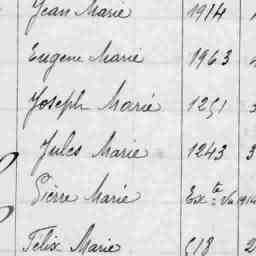 Jean Marie 1914
Eugene Marie 1963
Joseph Marie 1251
Jules Marie 1243 3
Pièrre Marie Exte
Félix Marie 518 2